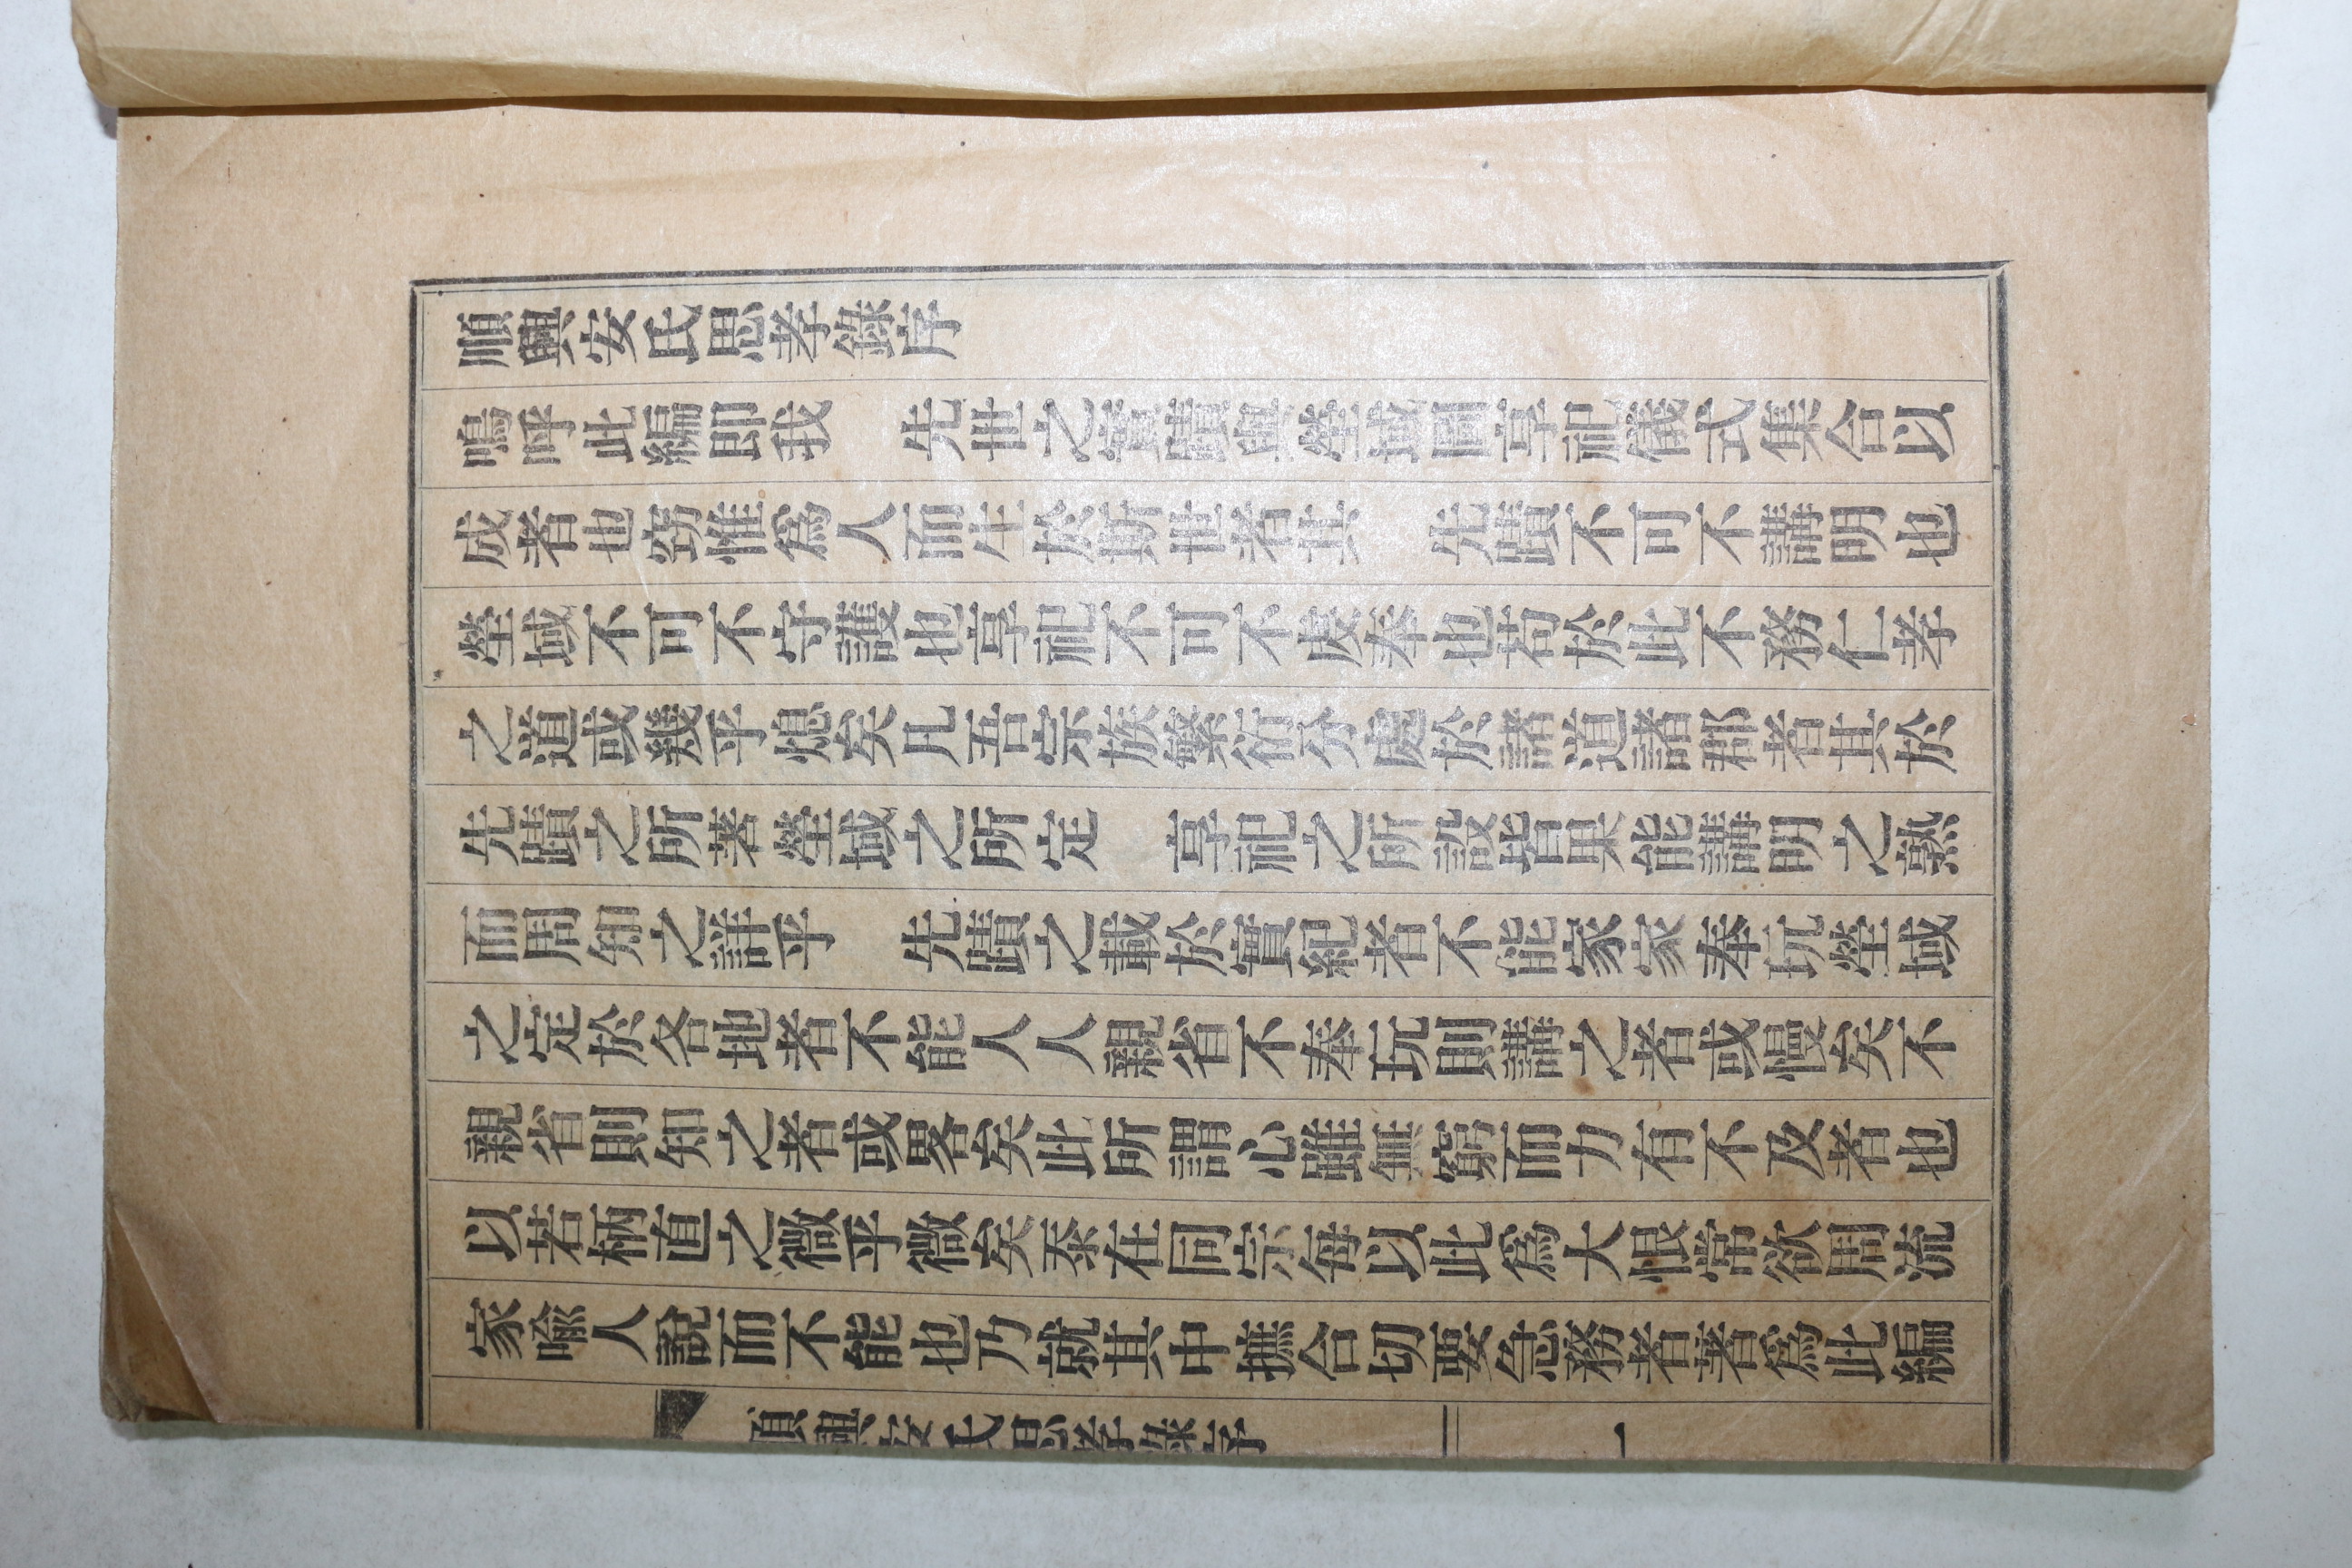 順興安氏思孝錄序
嗚呼此編即我 先世之蹟與塋域享祀儀式集合以
成者也窃惟爲人而生於斯世者其 先蹟不可不講明也
塋域不可不守護也享祀不可不虔奉也若於此不務仁孝
之道或幾乎熄矣凡吾宗族繁衍分處於諸道諸郡者其於
先蹟之所著塋域之所定 享祀之所設皆果能講明之熟
而周知之詳乎 先蹟之載於實紀者不能家家奉玩塋域
之定於各地者不能人人親省不奉玩則講之者或慢矣不
親省則知之者或畧矣此所謂心雖無窮而力有不及者也
以若柄直之微乎微矣忝在同宗每以此爲大恨常欲周流
家喩人說而不能也乃就其中撫合切要急務者著爲此編
順興安氏思孝錄序 一